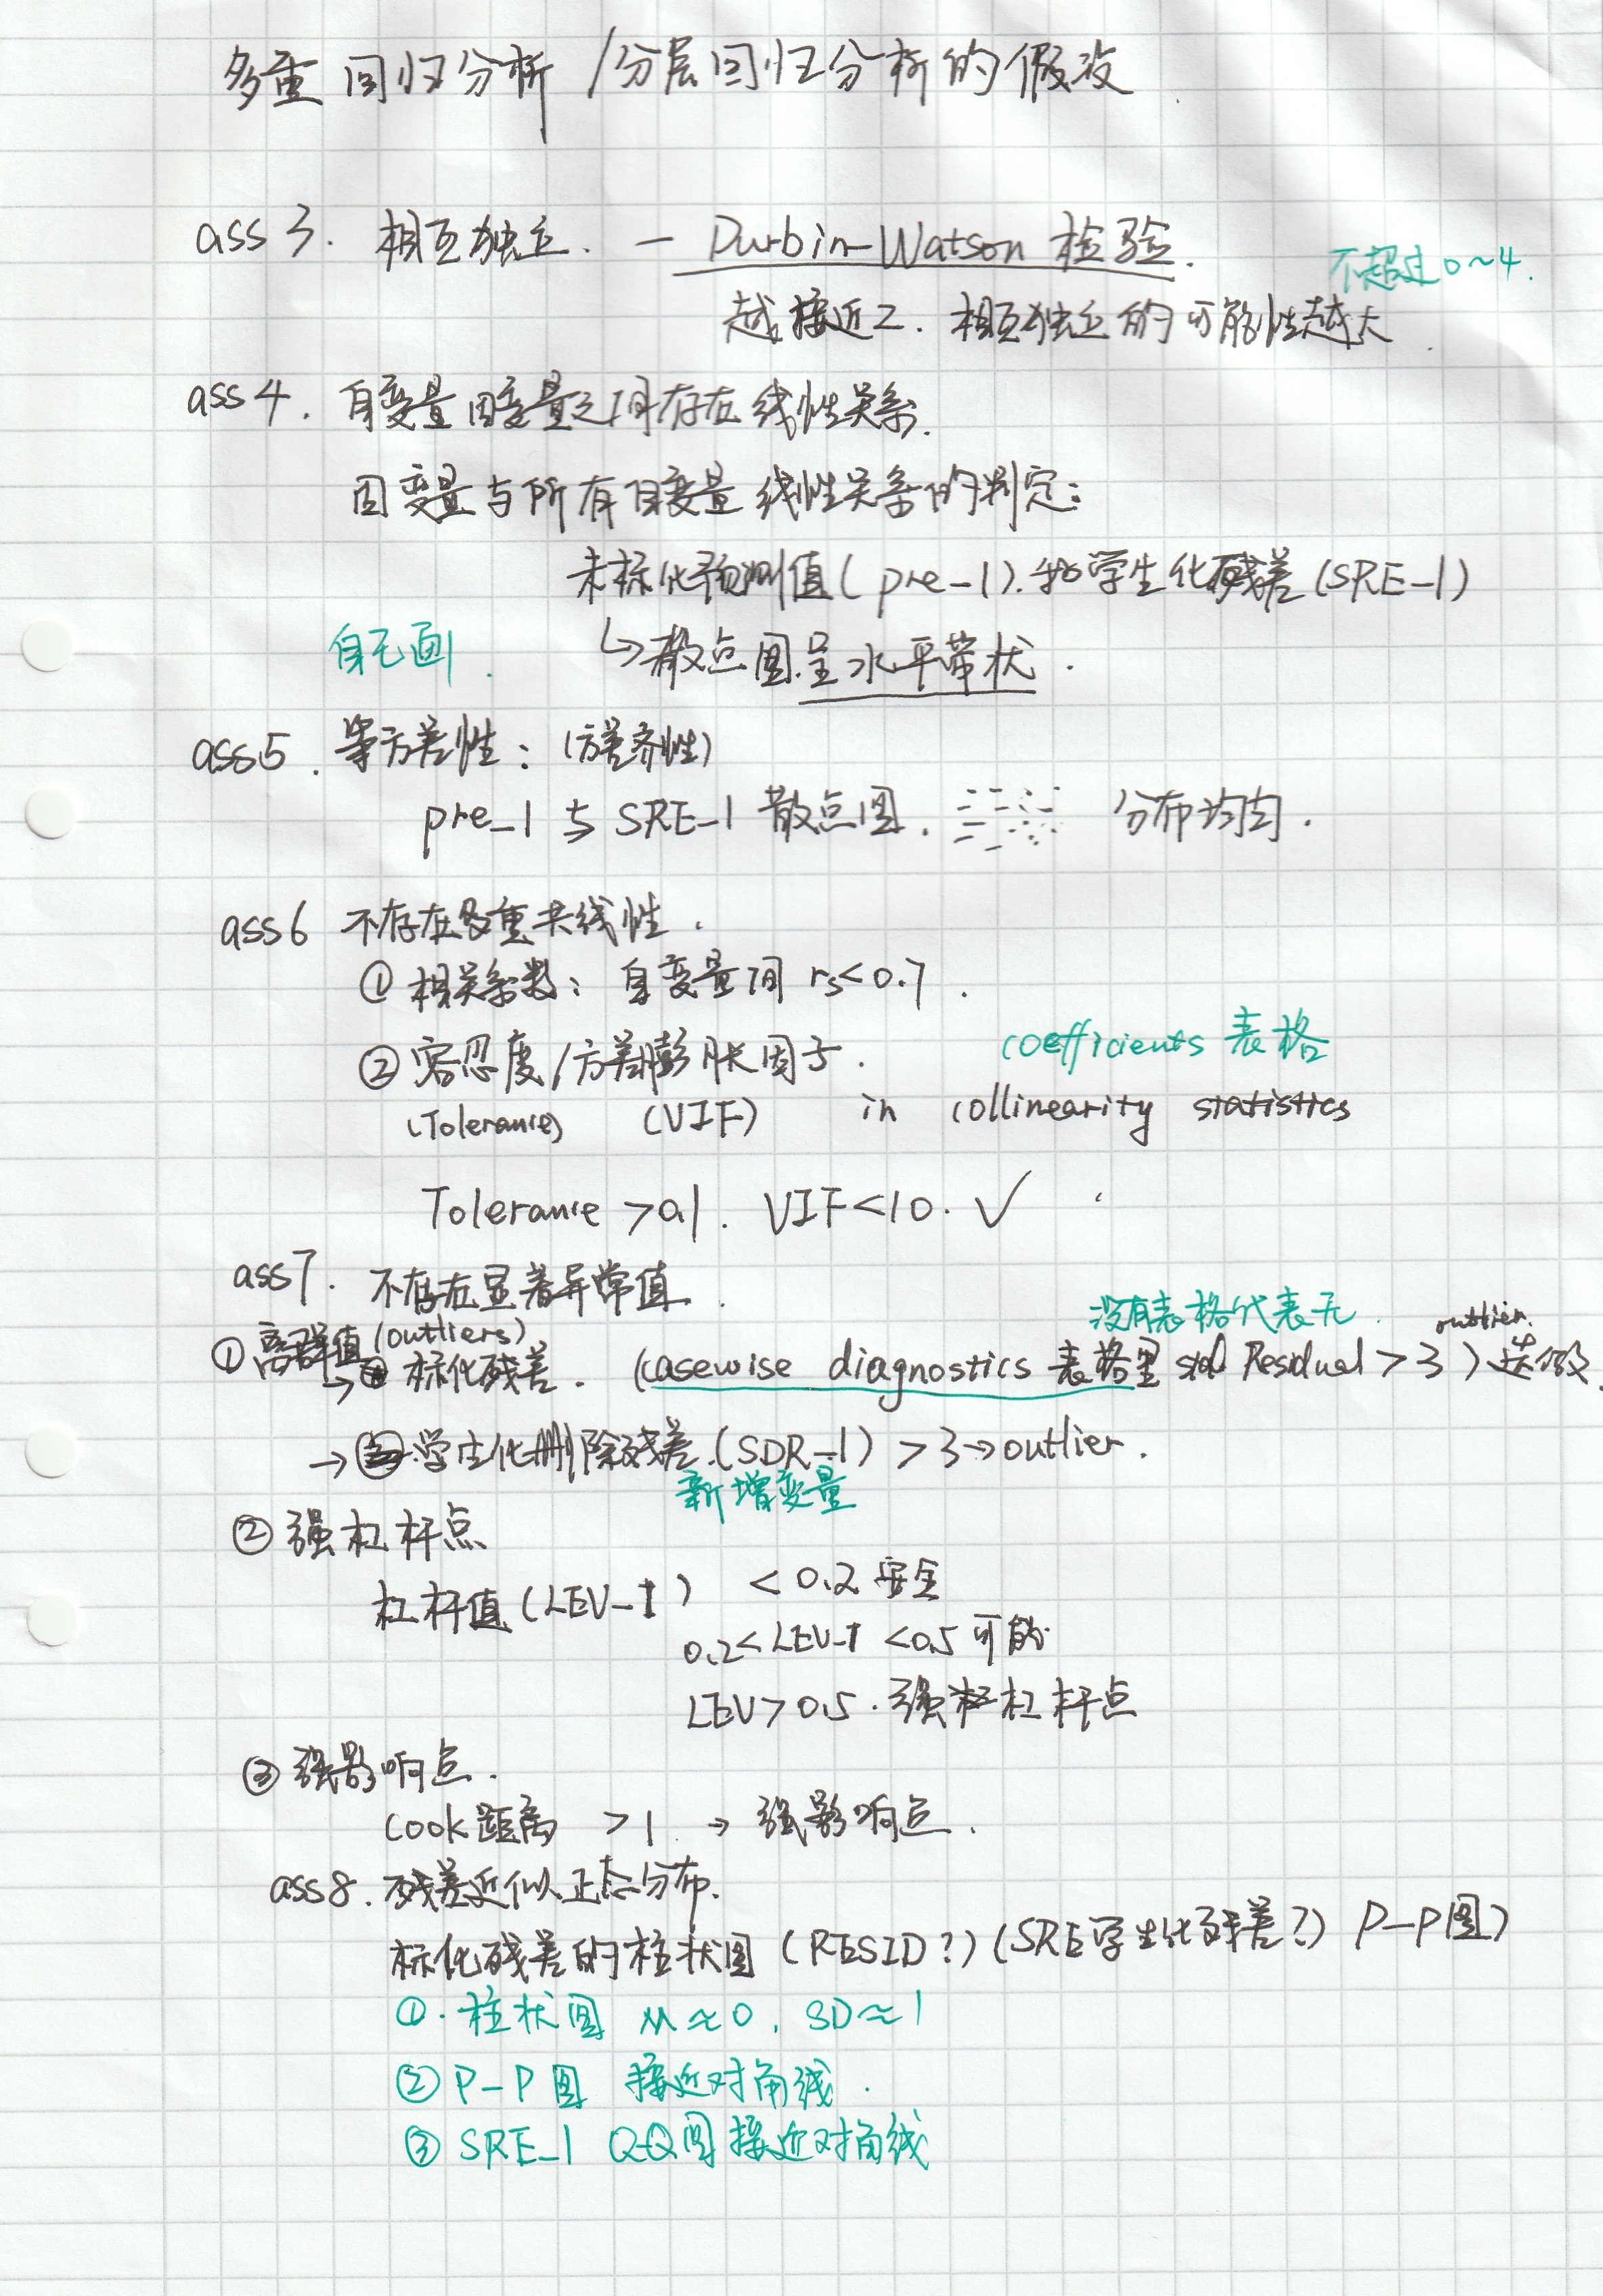 多重回归分析/分层回归分析的假设
ass 3. 相互独立. — Durbin-Watson 检验.
不超过0~4.
越接近2. 相互独立的可能性越大.
ass 4. 自变量因变量之间存在线性关系.
因变量与所有自变量线性关系的判定:
未标化预测值(pre-1).和学生化残差(SRE-1)
自己画. ↳散点图.呈水平带状.
ass5. 等方差性: (方差齐性)
pre_1 与 SRE-1 散点图. 分布均匀.
ass6 不存在多重共线性.
① 相关系数: 自变量间 rs<0.7.
② 容忍度/方差膨胀因子. coefficients 表格
(Tolerance) (VIF) in collinearity statistics
Tolerance >0.1. VIF<10. ✓
ass7. 不存在显著异常值.
没有表格代表无. outlier.
① 离群值(outliers)
→ 标化残差. (casewise diagnostics 表格里 std Residual >3)
→ 学生化删除残差.(SDR-1) >3→outlier.
新增变量
② 强杠杆点
杠杆值(LEV-1) <0.2 安全
0.2< LEV-1 <0.5 可能
LEV>0.5. 强杠杆点
③ 强影响点.
Cook距离 >1 → 强影响点.
ass8. 残差近似正态分布.
标化残差的柱状图 (RESID?) (SRE学生化残差?) P-P图)
①. 柱状图 M≈0, SD≈1
② P-P图 接近对角线.
③ SRE_1 Q-Q图接近对角线